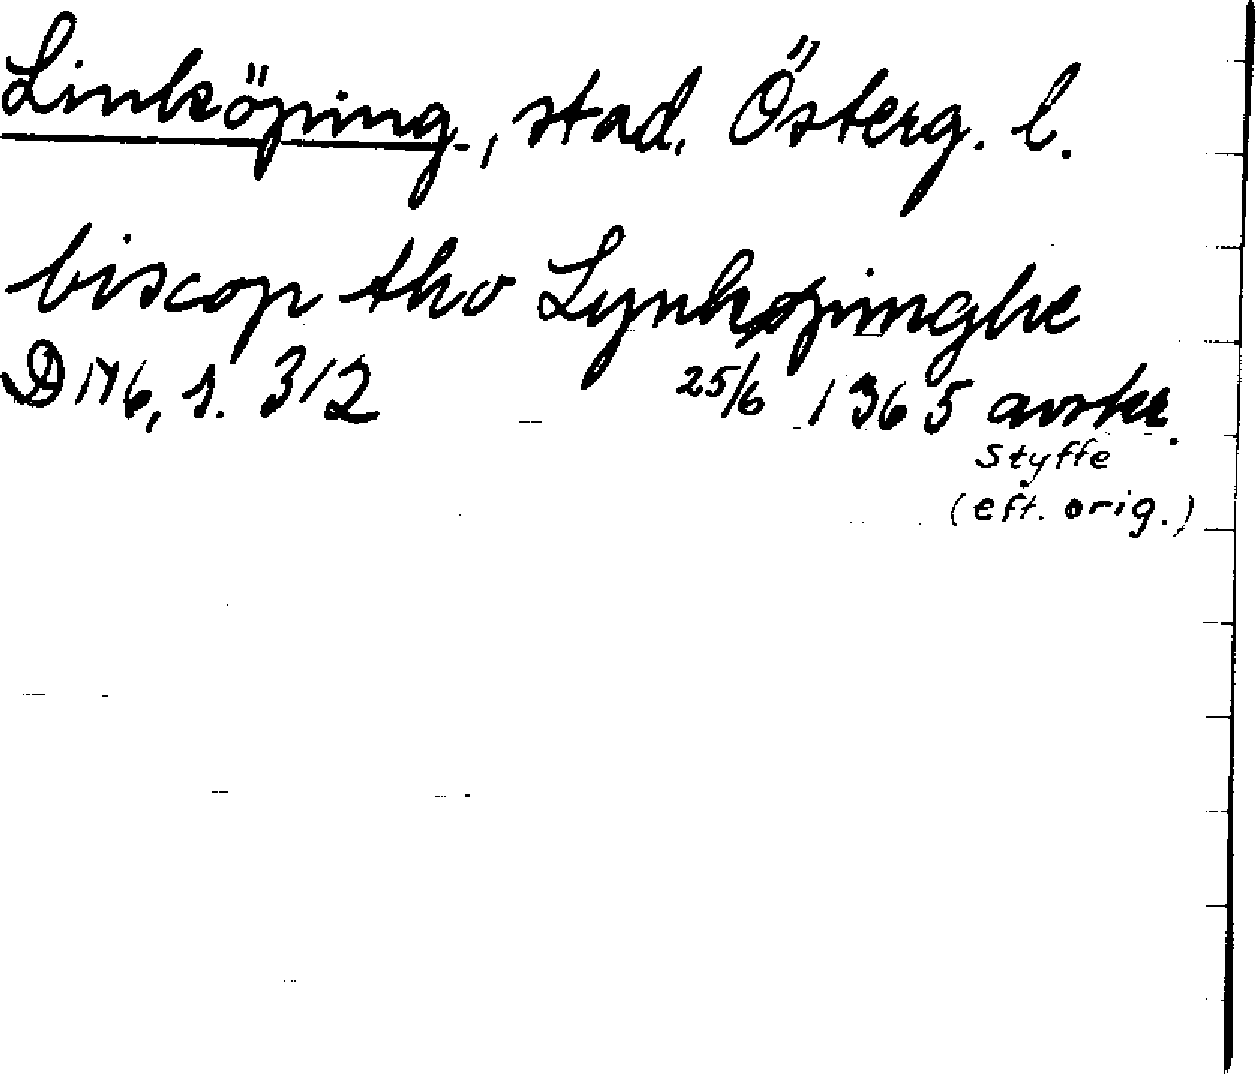 Linköping, stad. Österg. l.
biscop tho Lynkøpinghe
DN 6, s. 312 25/6 1365 avskr.
Styffe
(eft. orig.)